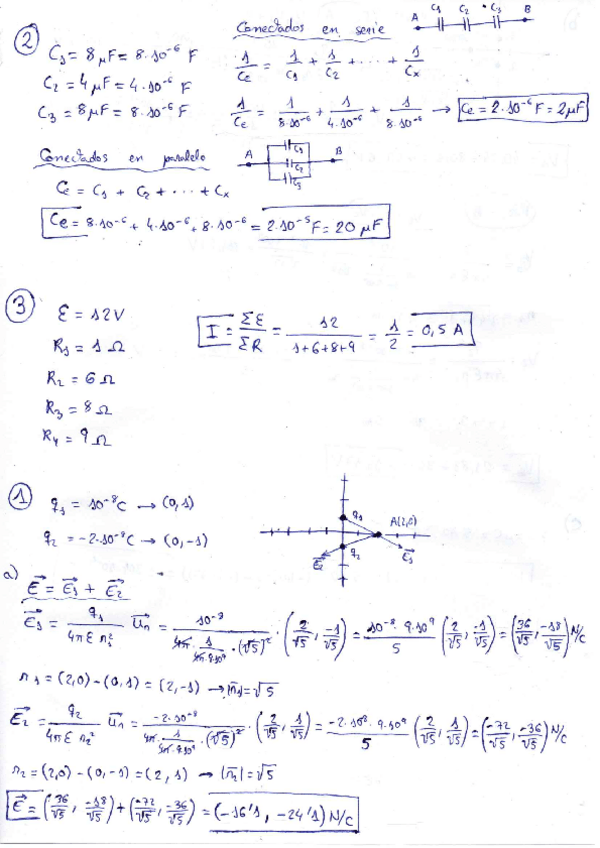 ② C₁ = 8μF = 8·10⁻⁶ F
C₂ = 4μF = 4·10⁻⁶ F
C₃ = 8μF = 8·10⁻⁶ F
Conectados en serie
A C₁ C₂ C₃ B
1/Ce = 1/C₁ + 1/C₂ + ··· + 1/Cx
1/Ce = 1/8·10⁻⁶ + 1/4·10⁻⁶ + 1/8·10⁻⁶ → Ce = 2·10⁻⁶ F = 2μF
Conectados en paralelo
A C₁ C₂ C₃ B
Ce = C₁ + C₂ + ··· + Cx
Ce = 8·10⁻⁶ + 4·10⁻⁶ + 8·10⁻⁶ = 2·10⁻⁵ F = 20 μF
③ ε = 12V
R₁ = 1 Ω
R₂ = 6 Ω
R₃ = 8 Ω
R₄ = 9 Ω
I = Σε/ΣR = 12/(1+6+8+9) = 1/2 = 0,5 A
① q₁ = 10⁻⁸C → (0,1)
q₂ = -2·10⁻⁸C → (0,-1)
q₁ A(2,0)
E₂ q₂ E₁
a) E = E₁ + E₂
E₁ = q₁/(4πε r₁²) uₙ = 10⁻⁸/(4π·1/(4π·9·10⁹)·(√5)²) · (2/√5, -1/√5) = 10⁻⁸·9·10⁹/5 (2/√5, -1/√5) = (36/√5, -18/√5) N/C
r₁ = (2,0)-(0,1) = (2,-1) → |r₁| = √5
E₂ = q₂/(4πε r₂²) uₙ = -2·10⁻⁸/(4π·1/(4π·9·10⁹)·(√5)²) · (2/√5, 1/√5) = -2·10⁻⁸·9·10⁹/5 (2/√5, 1/√5) = (-72/√5, -36/√5) N/C
r₂ = (2,0)-(0,-1) = (2,1) → |r₂| = √5
E = (36/√5, -18/√5) + (-72/√5, -36/√5) = (-16'1, -24'1) N/C